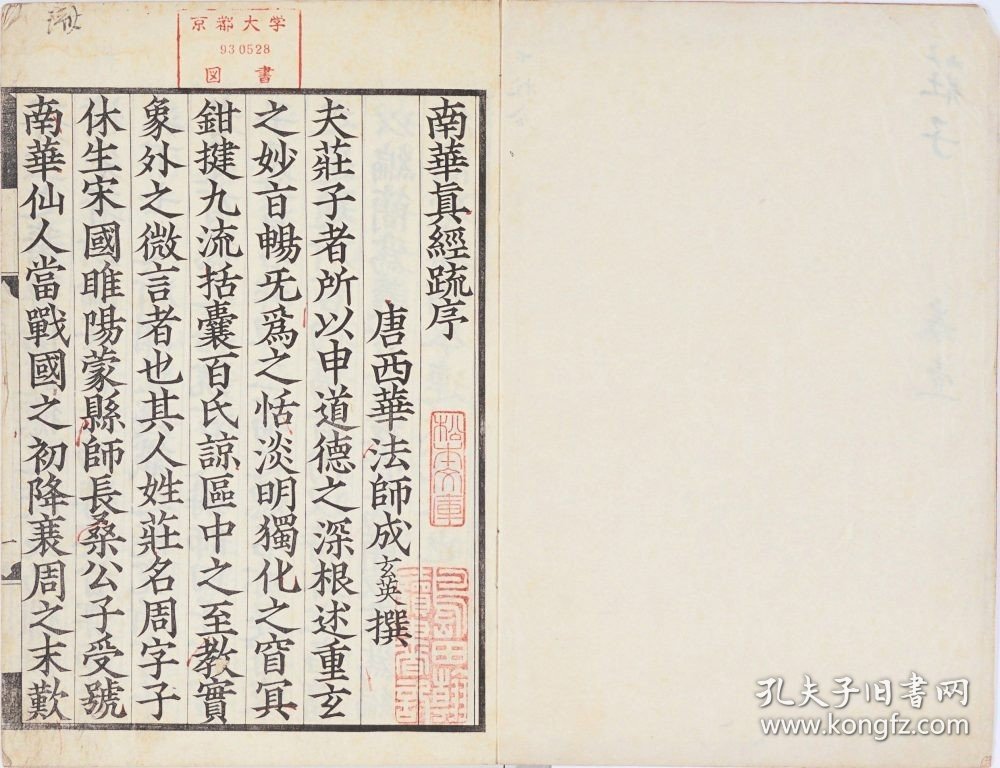 京都大学
930528
図書
南華真經疏序
唐西華法師成玄英撰
夫莊子者所以申道德之深根述重玄
之妙㫖暢旡爲之恬淡明獨化之窅冥
鉗揵九流括囊百氏諒區中之至教實
象外之微言者也其人姓莊名周字子
休生宋國睢陽蒙縣師長桒公子受號
南華仙人當戰國之初降衰周之末歎
松本文庫
莊子
孔夫子旧書网
www.kongfz.com